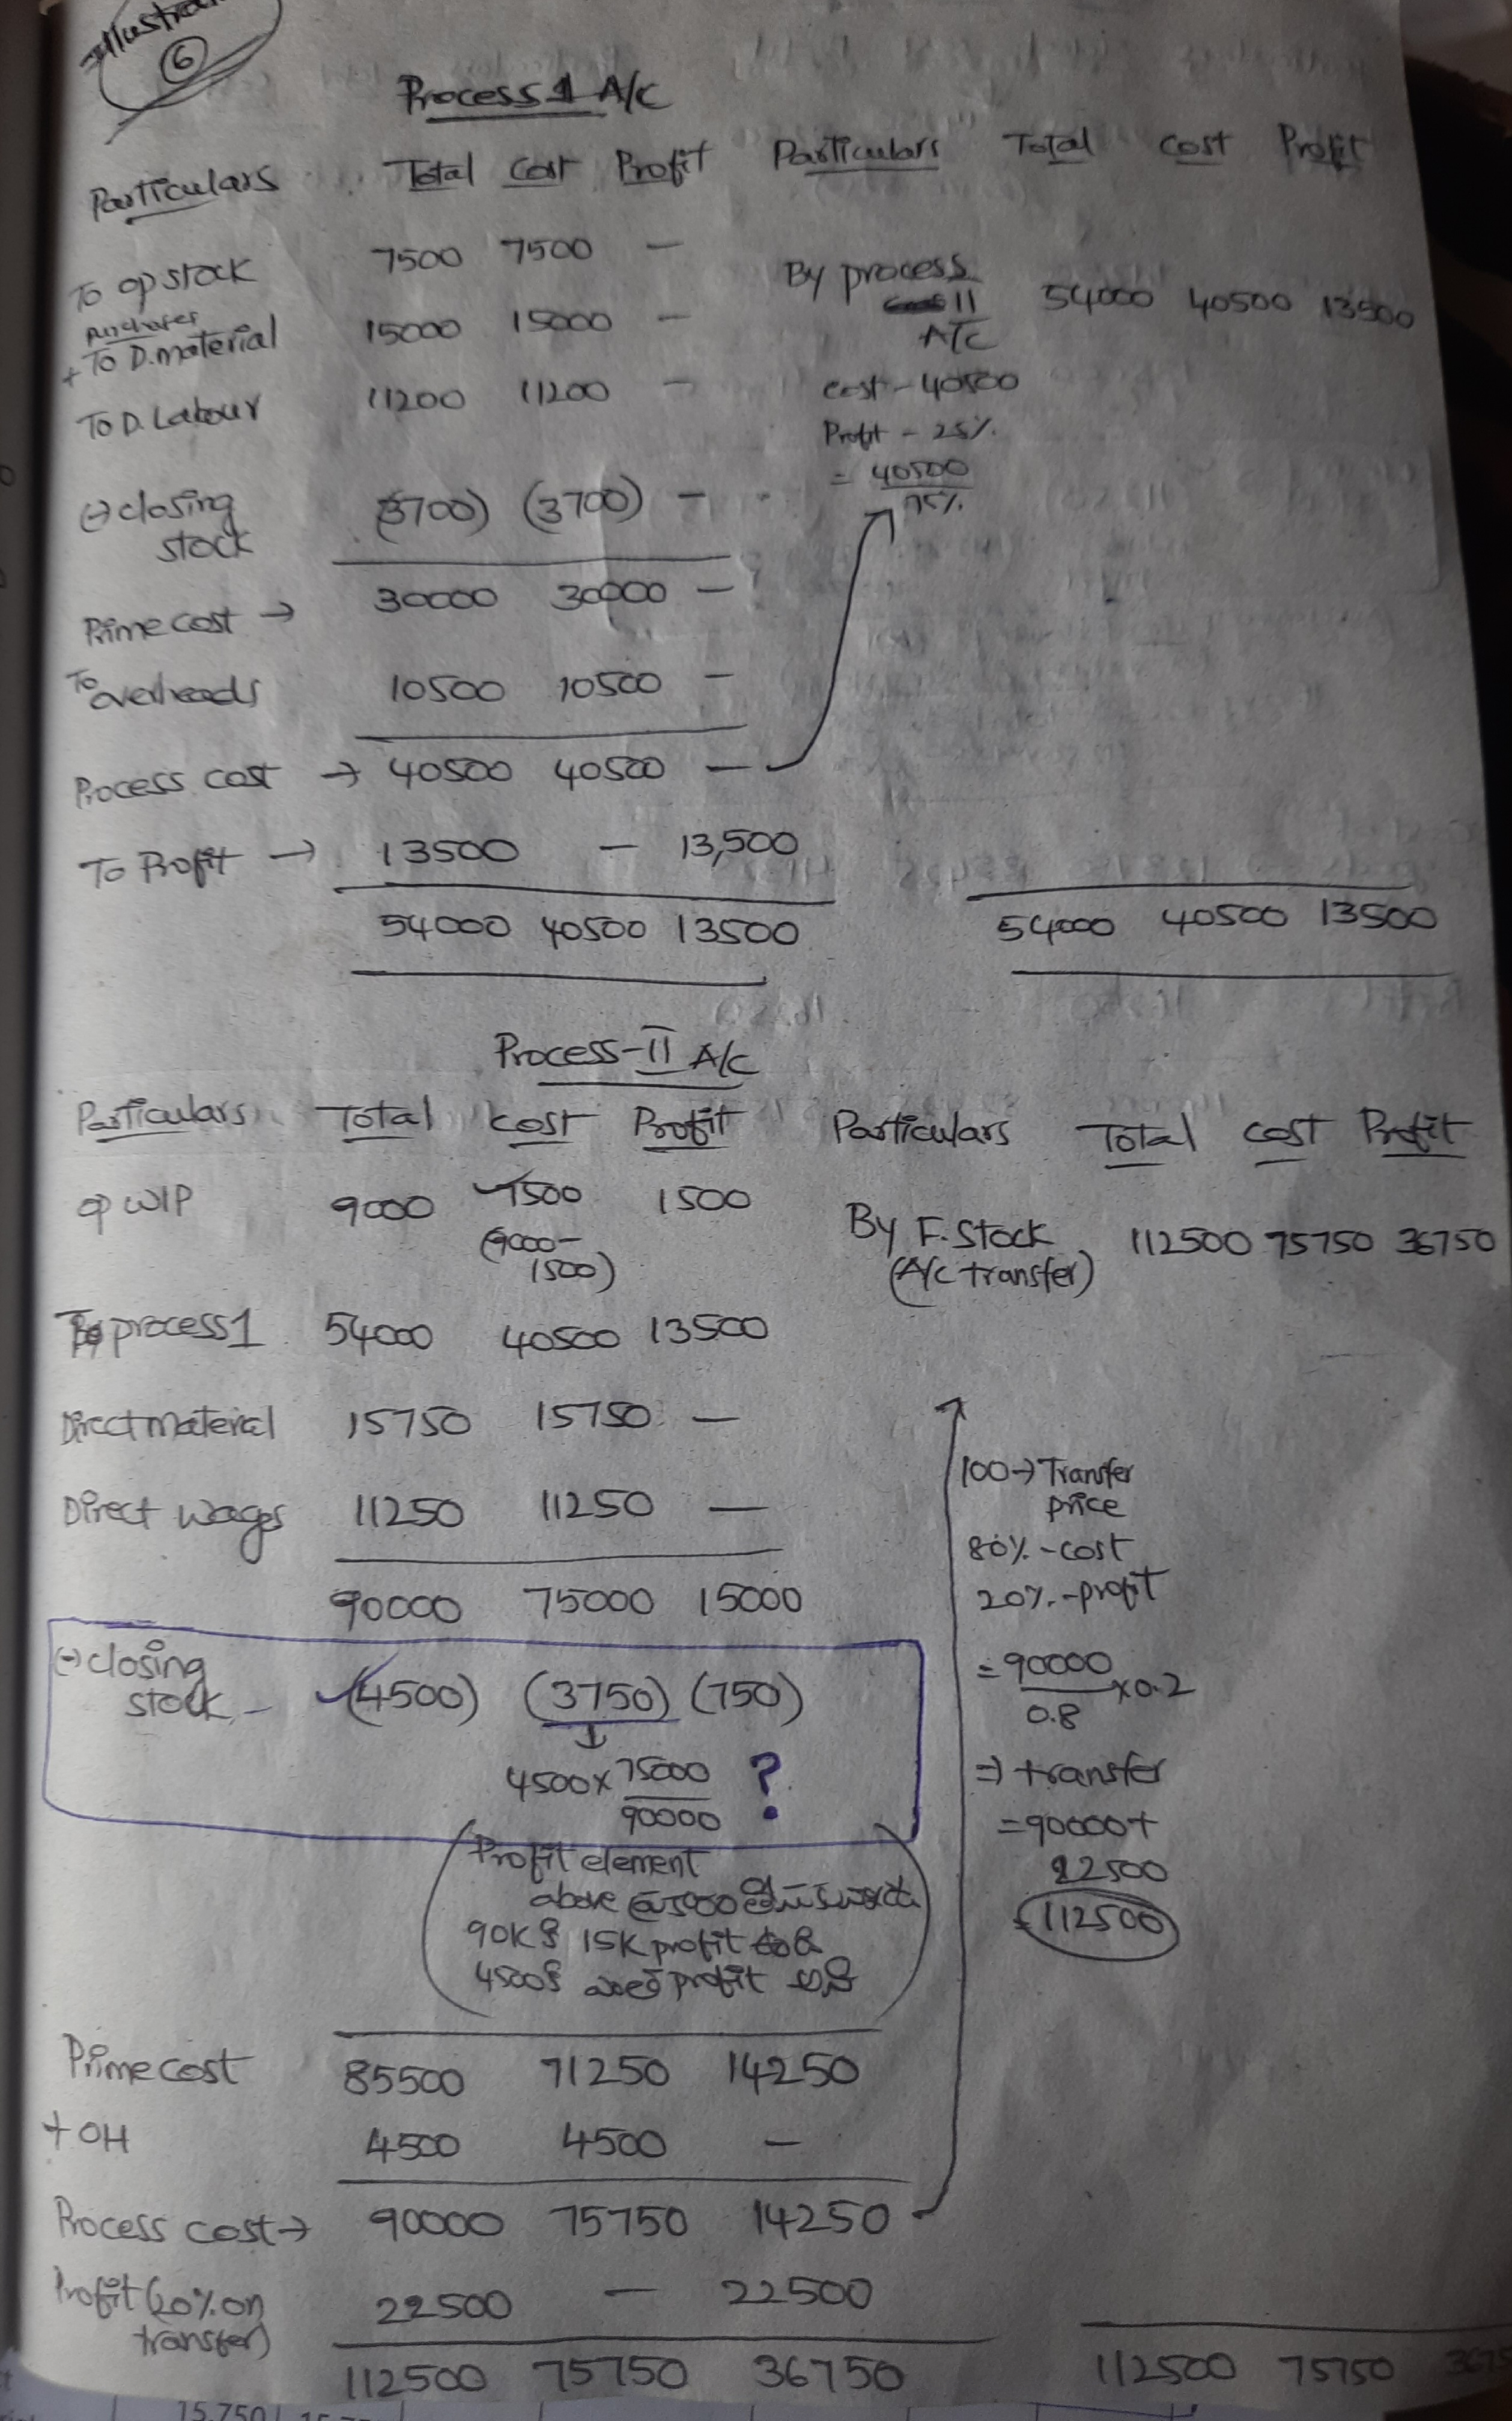 Illustra
6
Process 1 A/C
Particulars Total Cost Profit Particulars Total Cost Profit
To op stock 7500 7500 —
By process II A/C 54000 40500 13500
purchases
+ To D.material 15000 15000 —
To D. Labour 11200 11200 —
cost - 40500
Profit - 25%
= 40500
75%
(-) closing stock (3700) (3700) —
Prime cost → 30000 30000 —
To overheads 10500 10500 —
Process cost → 40500 40500 —
To Profit → 13500 — 13,500
54000 40500 13500 54000 40500 13500
Process-II A/C
Particulars Total Cost Profit Particulars Total Cost Profit
op WIP 9000 7500 1500
(9000-
1500)
By F. Stock 112500 75750 36750
(A/c transfer)
To process1 54000 40500 13500
Direct material 15750 15750 —
Direct wages 11250 11250 —
90000 75000 15000
100→ Transfer
price
80% - cost
20% - profit
= 90000 × 0.2
0.8
⇒ transfer
= 90000+
22500
= 112500
(-) closing
stock - (4500) (3750) (750)
↓
4500 × 75000 ?
90000
(Profit element
above
90K కి 15K profit
4500కి profit
Prime cost 85500 71250 14250
+ OH 4500 4500 —
Process cost → 90000 75750 14250
Profit (20% on
transfer) 22500 — 22500
112500 75750 36750 112500 75750 3675
15,750